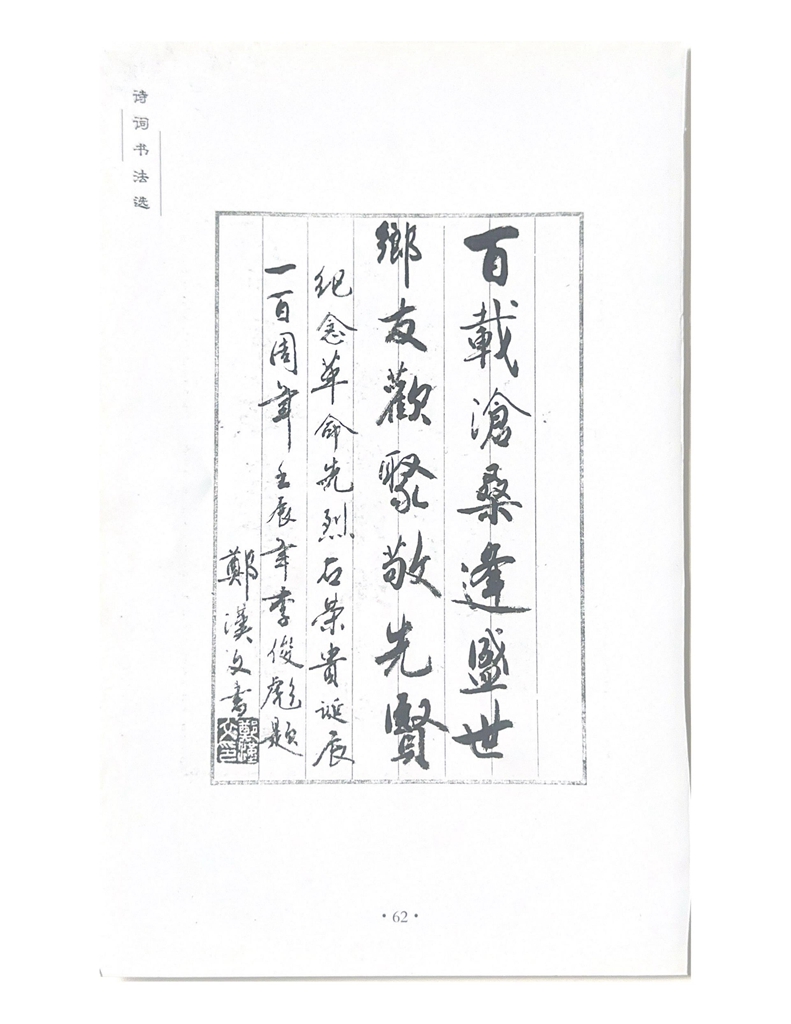 诗词书法选
百載滄桑逢盛世
鄉友歡聚敬先賢
纪念革命先烈石荣貴诞辰
一百周年壬辰年李俊彪题
鄭漢文書
鄭漢文印
·62·